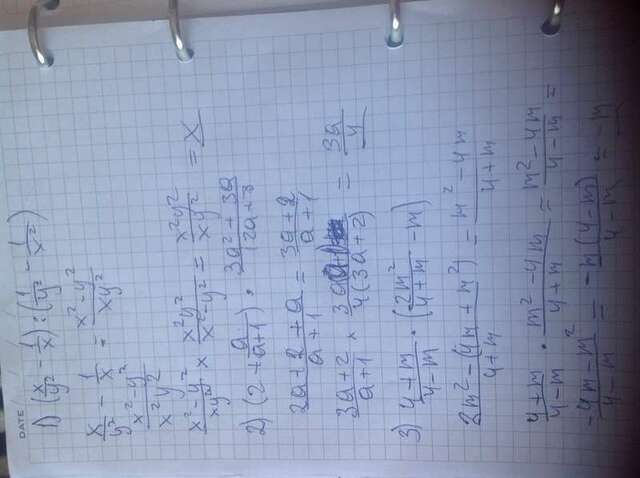 DATE
1) (x/y² - 1/x) : (1/y² - 1/x²)
x/y² - 1/x = x² - y²/xy²
x² - y²/x²y²
x² - y²/xy² × x²y²/x² - y² = x²y²/xy² = x
2) (2 + a/a+1) · 3a² + 3a/12a + 8
2a + 2 + a/a + 1 = 3a + 2/a + 1
3a + 2/a + 1 × 3a(a+1)/4(3a + 2) = 3a/4
3) 4 + m/4 - m · (2m²/4 + m - m)
2m² - (4m + m²)/4 + m = m² - 4m/4 + m
4 + m/4 - m · m² - 4m/4 + m = m² - 4m/4 - m =
-4m - m²/4 - m = -m(4 - m)/4 - m = -m